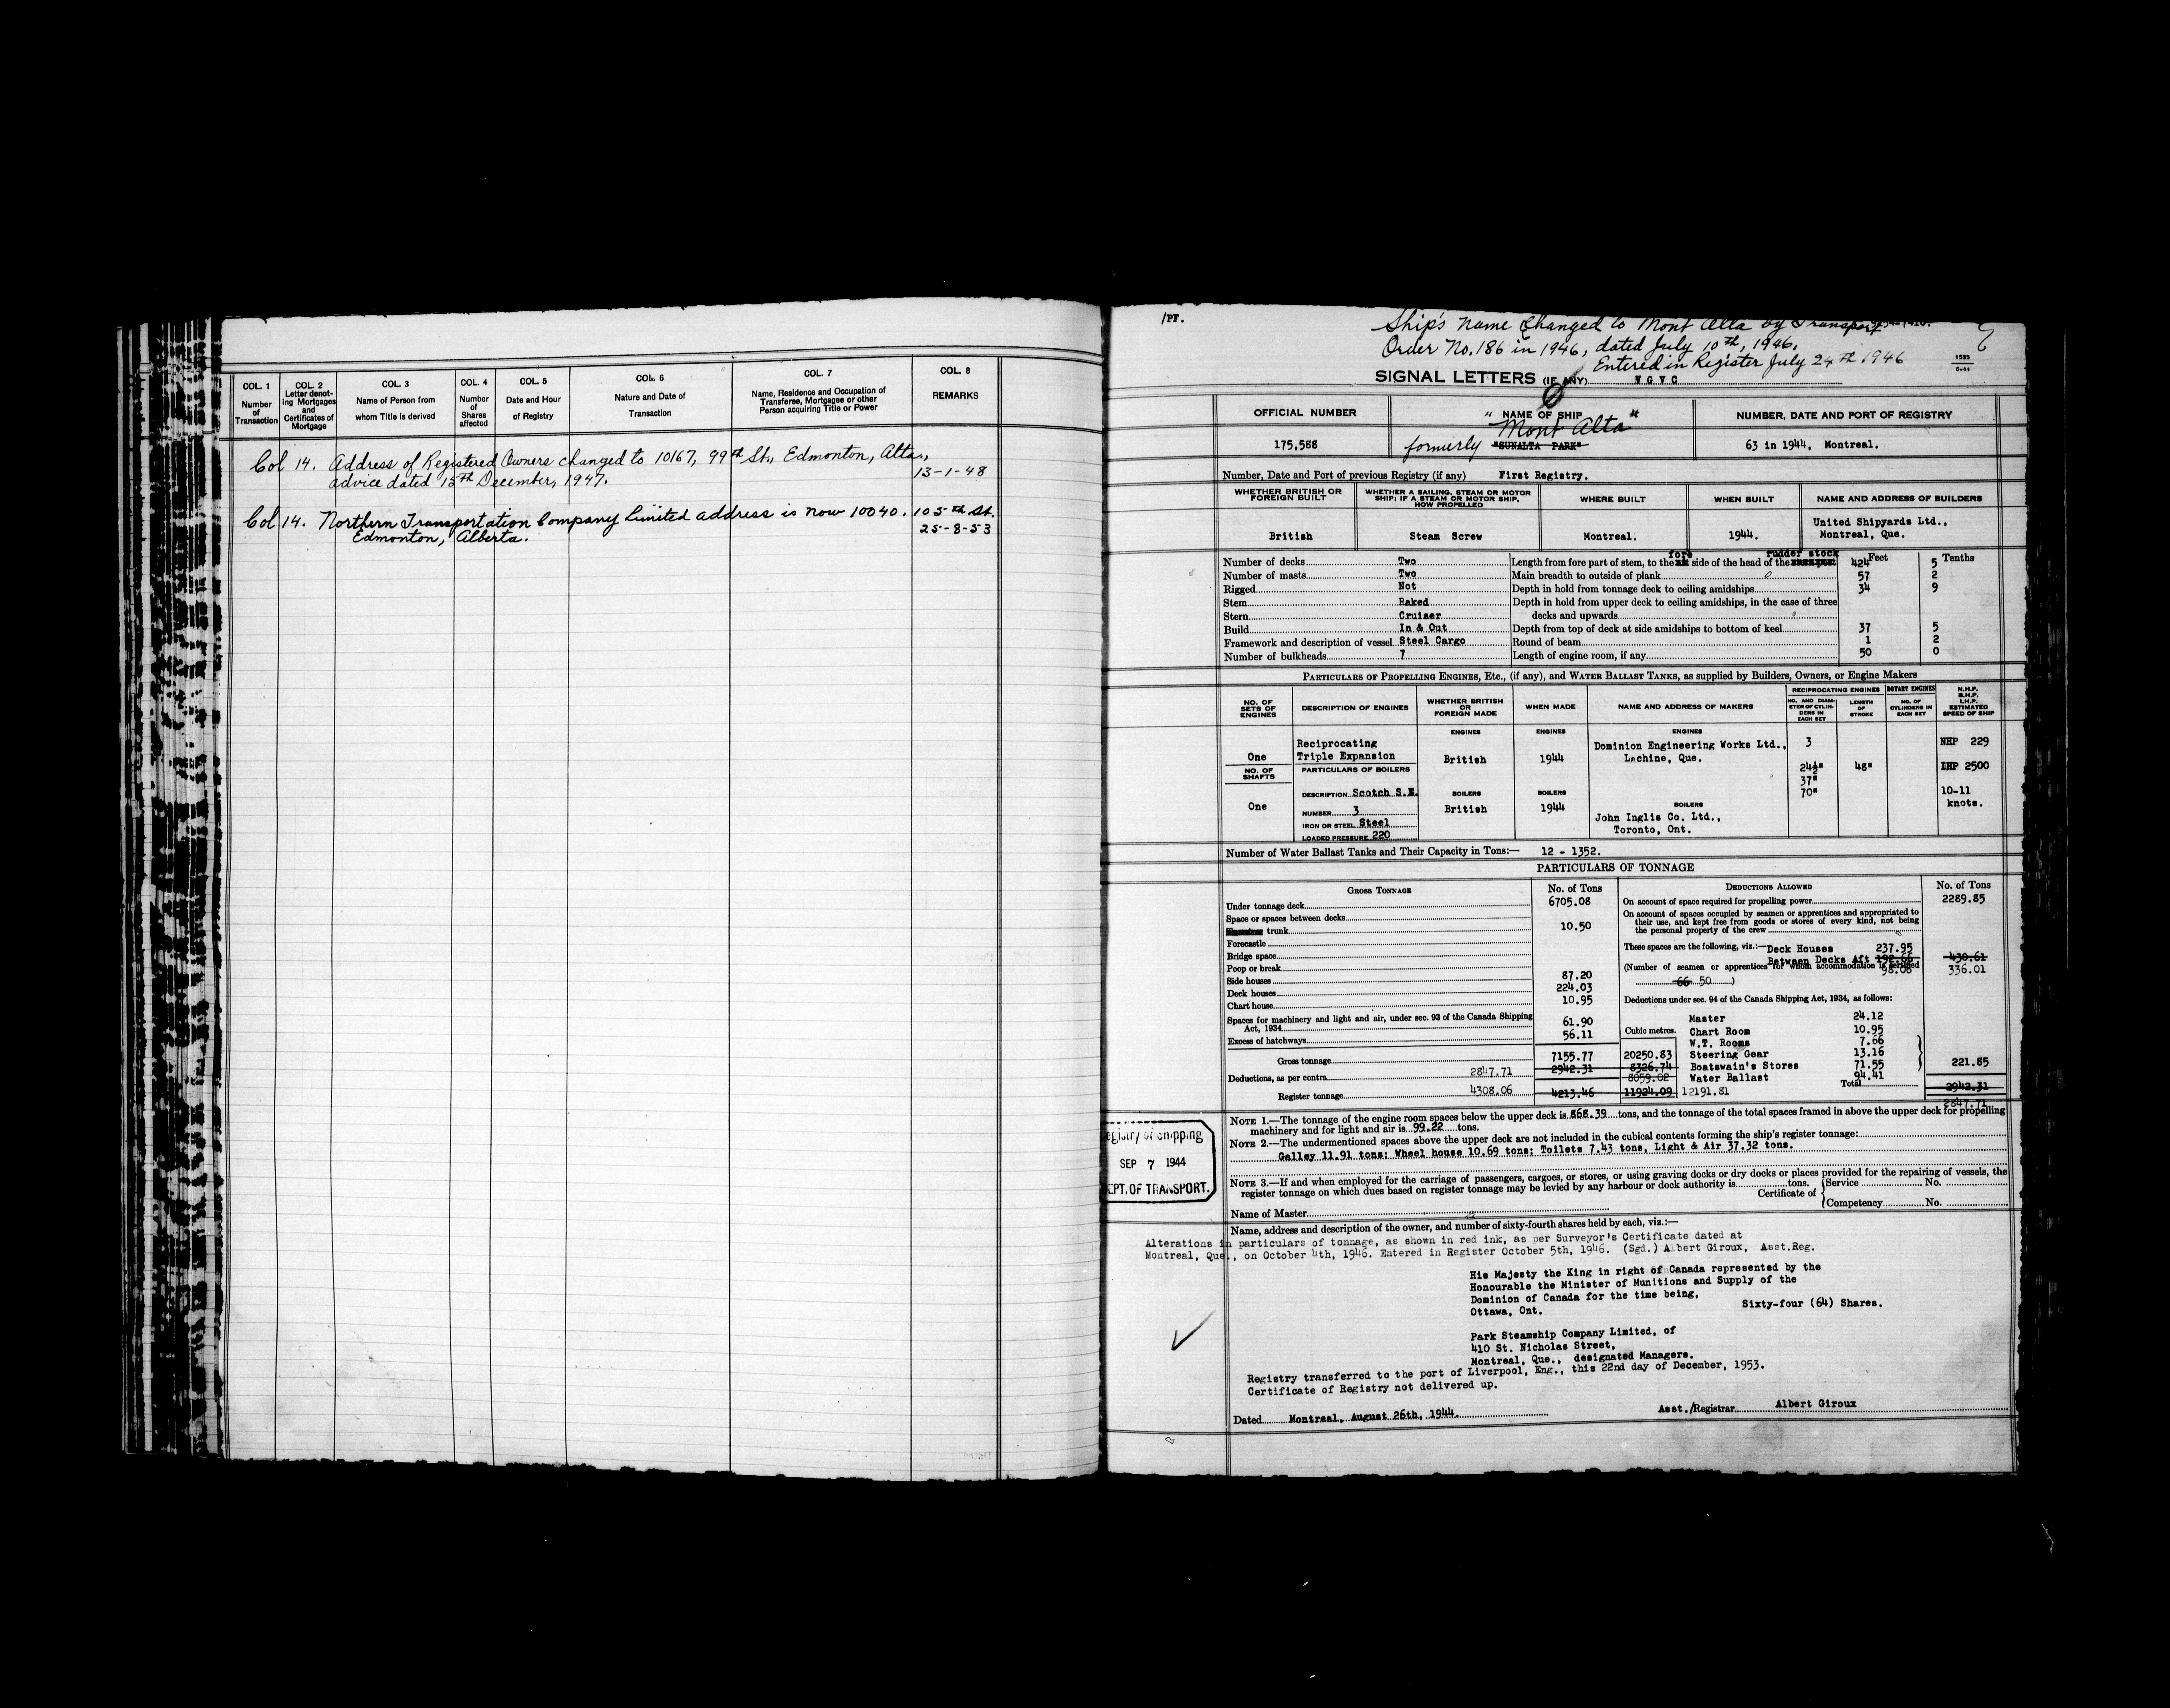 COL. 1 Number of Transaction
COL. 2 Letter denoting Mortgages and Certificates of Mortgage
COL. 3 Name of Person from whom Title is derived
COL. 4 Number of Shares affected
COL. 5 Date and Hour of Registry
COL. 6 Nature and Date of Transaction
COL. 7 Name, Residence and Occupation of Transferee, Mortgagee or other Person acquiring Title or Power
COL. 8 REMARKS
Col 14. Address of Registered Owners changed to 10167, 99th St., Edmonton, Alta.,
advice dated 15th December, 1947. 13-1-48
Col 14. Northern Transportation Company Limited address is now 10040. 105th St.
Edmonton, Alberta. 25-8-53
/PF.
Ship's Name Changed to Mont Alta by Transport
Order No. 186 in 1946, dated July 10th, 1946.
Entered in Register July 24th 1946
SIGNAL LETTERS (IF ANY) V G V C
OFFICIAL NUMBER NAME OF SHIP NUMBER, DATE AND PORT OF REGISTRY
"Mont Alta"
175,588 formerly "SUNALTA PARK" 63 in 1944, Montreal.
Number, Date and Port of previous Registry (if any) First Registry.
WHETHER BRITISH OR FOREIGN BUILT
WHETHER A SAILING, STEAM OR MOTOR SHIP; IF A STEAM OR MOTOR SHIP, HOW PROPELLED
WHERE BUILT WHEN BUILT NAME AND ADDRESS OF BUILDERS
British Steam Screw Montreal. 1944. United Shipyards Ltd., Montreal, Que.
Feet Tenths
Number of decks Two Length from fore part of stem, to the fore side of the head of the rudder stock 424 5
Number of masts Two Main breadth to outside of plank 57 2
Rigged Not Depth in hold from tonnage deck to ceiling amidships 34 9
Stem Raked Depth in hold from upper deck to ceiling amidships, in the case of three
Stern Cruiser decks and upwards
Build In & Out Depth from top of deck at side amidships to bottom of keel 37 5
Framework and description of vessel Steel Cargo Round of beam 1 2
Number of bulkheads 7 Length of engine room, if any 50 0
PARTICULARS OF PROPELLING ENGINES, ETC., (if any), and WATER BALLAST TANKS, as supplied by Builders, Owners, or Engine Makers
NO. OF SETS OF ENGINES
DESCRIPTION OF ENGINES
WHETHER BRITISH OR FOREIGN MADE
WHEN MADE
NAME AND ADDRESS OF MAKERS
RECIPROCATING ENGINES
NO. AND DIAMETER OF CYLINDERS IN EACH SET
LENGTH OF STROKE
ROTARY ENGINES
NO. OF CYLINDERS IN EACH SET
N.H.P. B.H.P. I.H.P. ESTIMATED SPEED OF SHIP
ENGINES ENGINES ENGINES
One Reciprocating Triple Expansion British 1944 Dominion Engineering Works Ltd., Lachine, Que.
3 24½" 37" 70" 48" NHP 229 IHP 2500 10-11 knots.
NO. OF SHAFTS PARTICULARS OF BOILERS
One DESCRIPTION Scotch S.E. BOILERS British BOILERS 1944
NUMBER 3 BOILERS
IRON OR STEEL Steel John Inglis Co. Ltd.,
LOADED PRESSURE 220 Toronto, Ont.
Number of Water Ballast Tanks and Their Capacity in Tons:— 12 - 1352.
PARTICULARS OF TONNAGE
GROSS TONNAGE No. of Tons
Under tonnage deck 6705.08
Space or spaces between decks
trunk 10.50
Forecastle
Bridge space
Poop or break
Side houses 87.20
Deck houses 224.03
Chart house 10.95
Spaces for machinery and light and air, under sec. 93 of the Canada Shipping
Act, 1934 61.90
Excess of hatchways 56.11
Gross tonnage 7155.77 20250.83
Deductions, as per contra 2847.71 2942.31 8326.74 8059.02
Register tonnage 4308.06 4213.46 11924.09 12191.81
Cubic metres.
DEDUCTIONS ALLOWED No. of Tons
On account of space required for propelling power 2289.85
On account of spaces occupied by seamen or apprentices and appropriated to
their use, and kept free from goods or stores of every kind, not being
the personal property of the crew
These spaces are the following, viz.:— Deck Houses 237.95
Between Decks Aft 192.66 430.61
98.06 336.01
(Number of seamen or apprentices for whom accommodation is certified
66 50 )
Deductions under sec. 94 of the Canada Shipping Act, 1934, as follows:
Master 24.12
Chart Room 10.95
W.T. Rooms 7.66
Steering Gear 13.16
Boatswain's Stores 71.55 221.85
Water Ballast 94.41
Total 2942.31
2847.71
NOTE 1.—The tonnage of the engine room spaces below the upper deck is 868.39 tons, and the tonnage of the total spaces framed in above the upper deck for propelling
machinery and for light and air is 99.22 tons.
NOTE 2.—The undermentioned spaces above the upper deck are not included in the cubical contents forming the ship's register tonnage:
Galley 11.91 tons; Wheel house 10.69 tons; Toilets 7.43 tons, Light & Air 37.32 tons.
NOTE 3.—If and when employed for the carriage of passengers, cargoes, or stores, or using graving docks or dry docks or places provided for the repairing of vessels, the
register tonnage on which dues based on register tonnage may be levied by any harbour or dock authority is tons.
Certificate of Service No.
Competency No.
Name of Master
egistry of Shipping
SEP 7 1944
EPT. OF TRANSPORT.
Name, address and description of the owner, and number of sixty-fourth shares held by each, viz.:—
Alterations in particulars of tonnage, as shown in red ink, as per Surveyor's Certificate dated at
Montreal, Que., on October 4th, 1946. Entered in Register October 5th, 1946. (Sgd.) Albert Giroux, Asst.Reg.
His Majesty the King in right of Canada represented by the
Honourable the Minister of Munitions and Supply of the
Dominion of Canada for the time being,
Ottawa, Ont. Sixty-four (64) Shares.
Park Steamship Company Limited, of
410 St. Nicholas Street,
Montreal, Que., designated Managers.
Registry transferred to the port of Liverpool, Eng., this 22nd day of December, 1953.
Certificate of Registry not delivered up.
Dated Montreal, August 26th, 1944. Asst./Registrar Albert Giroux